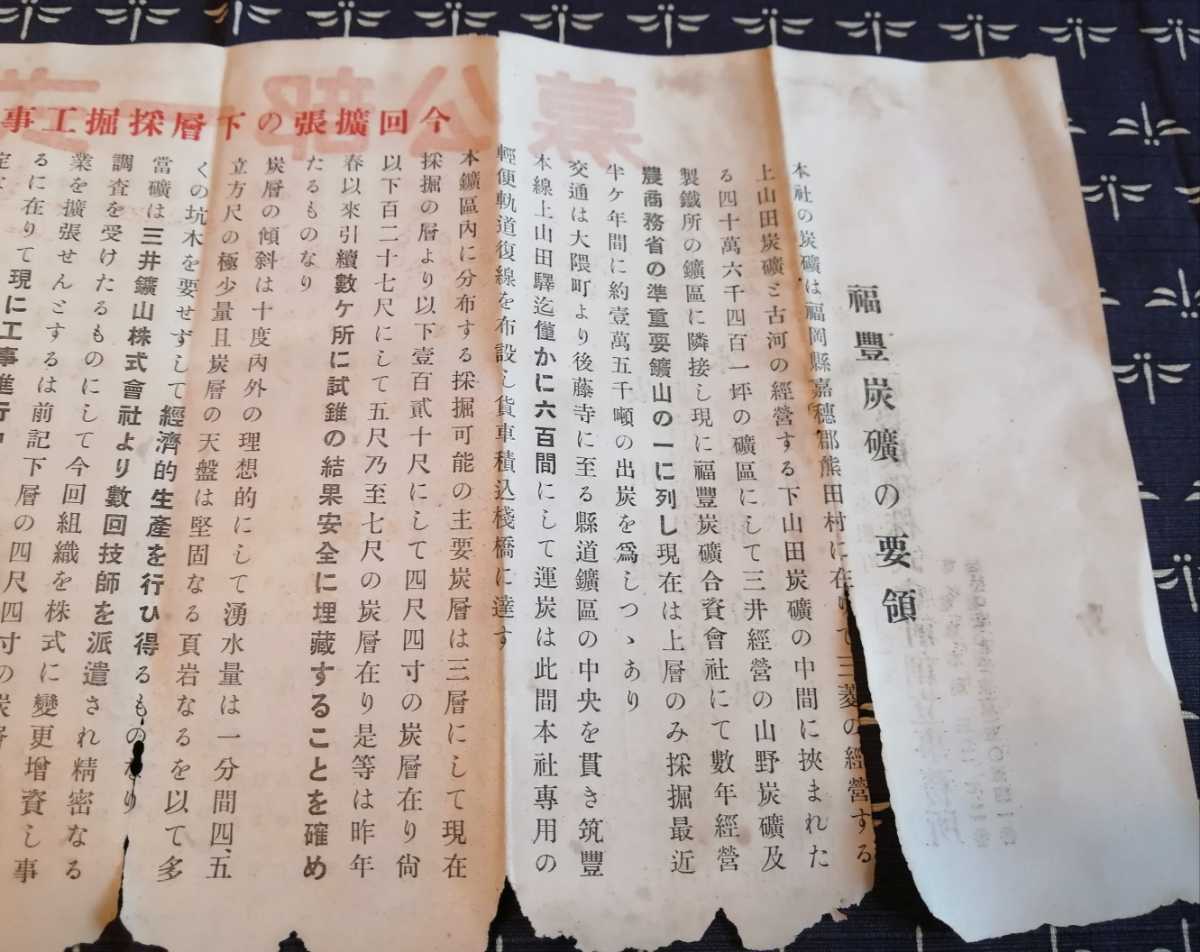 福豐炭礦の要領
本社の炭礦は福岡縣嘉穗郡熊田村に在りて三菱の經營する
上山田炭礦と古河の經營する下山田炭礦の中間に挾まれた
る四十萬六千四百一坪の礦區にして三井經營の山野炭礦及
製鐵所の鑛區に隣接し現に福豐炭礦合資會社にて數年經營
農商務省の準重要鑛山の一に列し現在は上層のみ採掘最近
半ケ年間に約壹萬五千噸の出炭を爲しつゝあり
交通は大隈町より後藤寺に至る縣道鑛區の中央を貫き筑豐
本線上山田驛迄僅かに六百間にして運炭は此間本社專用の
輕便軌道復線を布設し貨車積込棧橋に達す
今回擴張の下層採掘工事
本鑛區內に分布する採掘可能の主要炭層は三層にして現在
採掘の層より以下壹百貳十尺にして四尺四寸の炭層在り尙
以下百二十七尺にして五尺乃至七尺の炭層在り是等は昨年
春以來引續數ケ所に試錐の結果安全に埋藏することを確め
たるものなり
炭層の傾斜は十度內外の理想的にして湧水量は一分間四、五
立方尺の極少量且炭層の天盤は堅固なる頁岩なるを以て多
くの坑木を要せずして經濟的生產を行ひ得るものなり
當礦は三井鑛山株式會社より數回技師を派遣され精密なる
調査を受けたるものにして今回組織を株式に變更增資し事
業を擴張せんとするは前記下層の四尺四寸の炭
るに在りて現に工事進行
募
公
部
一